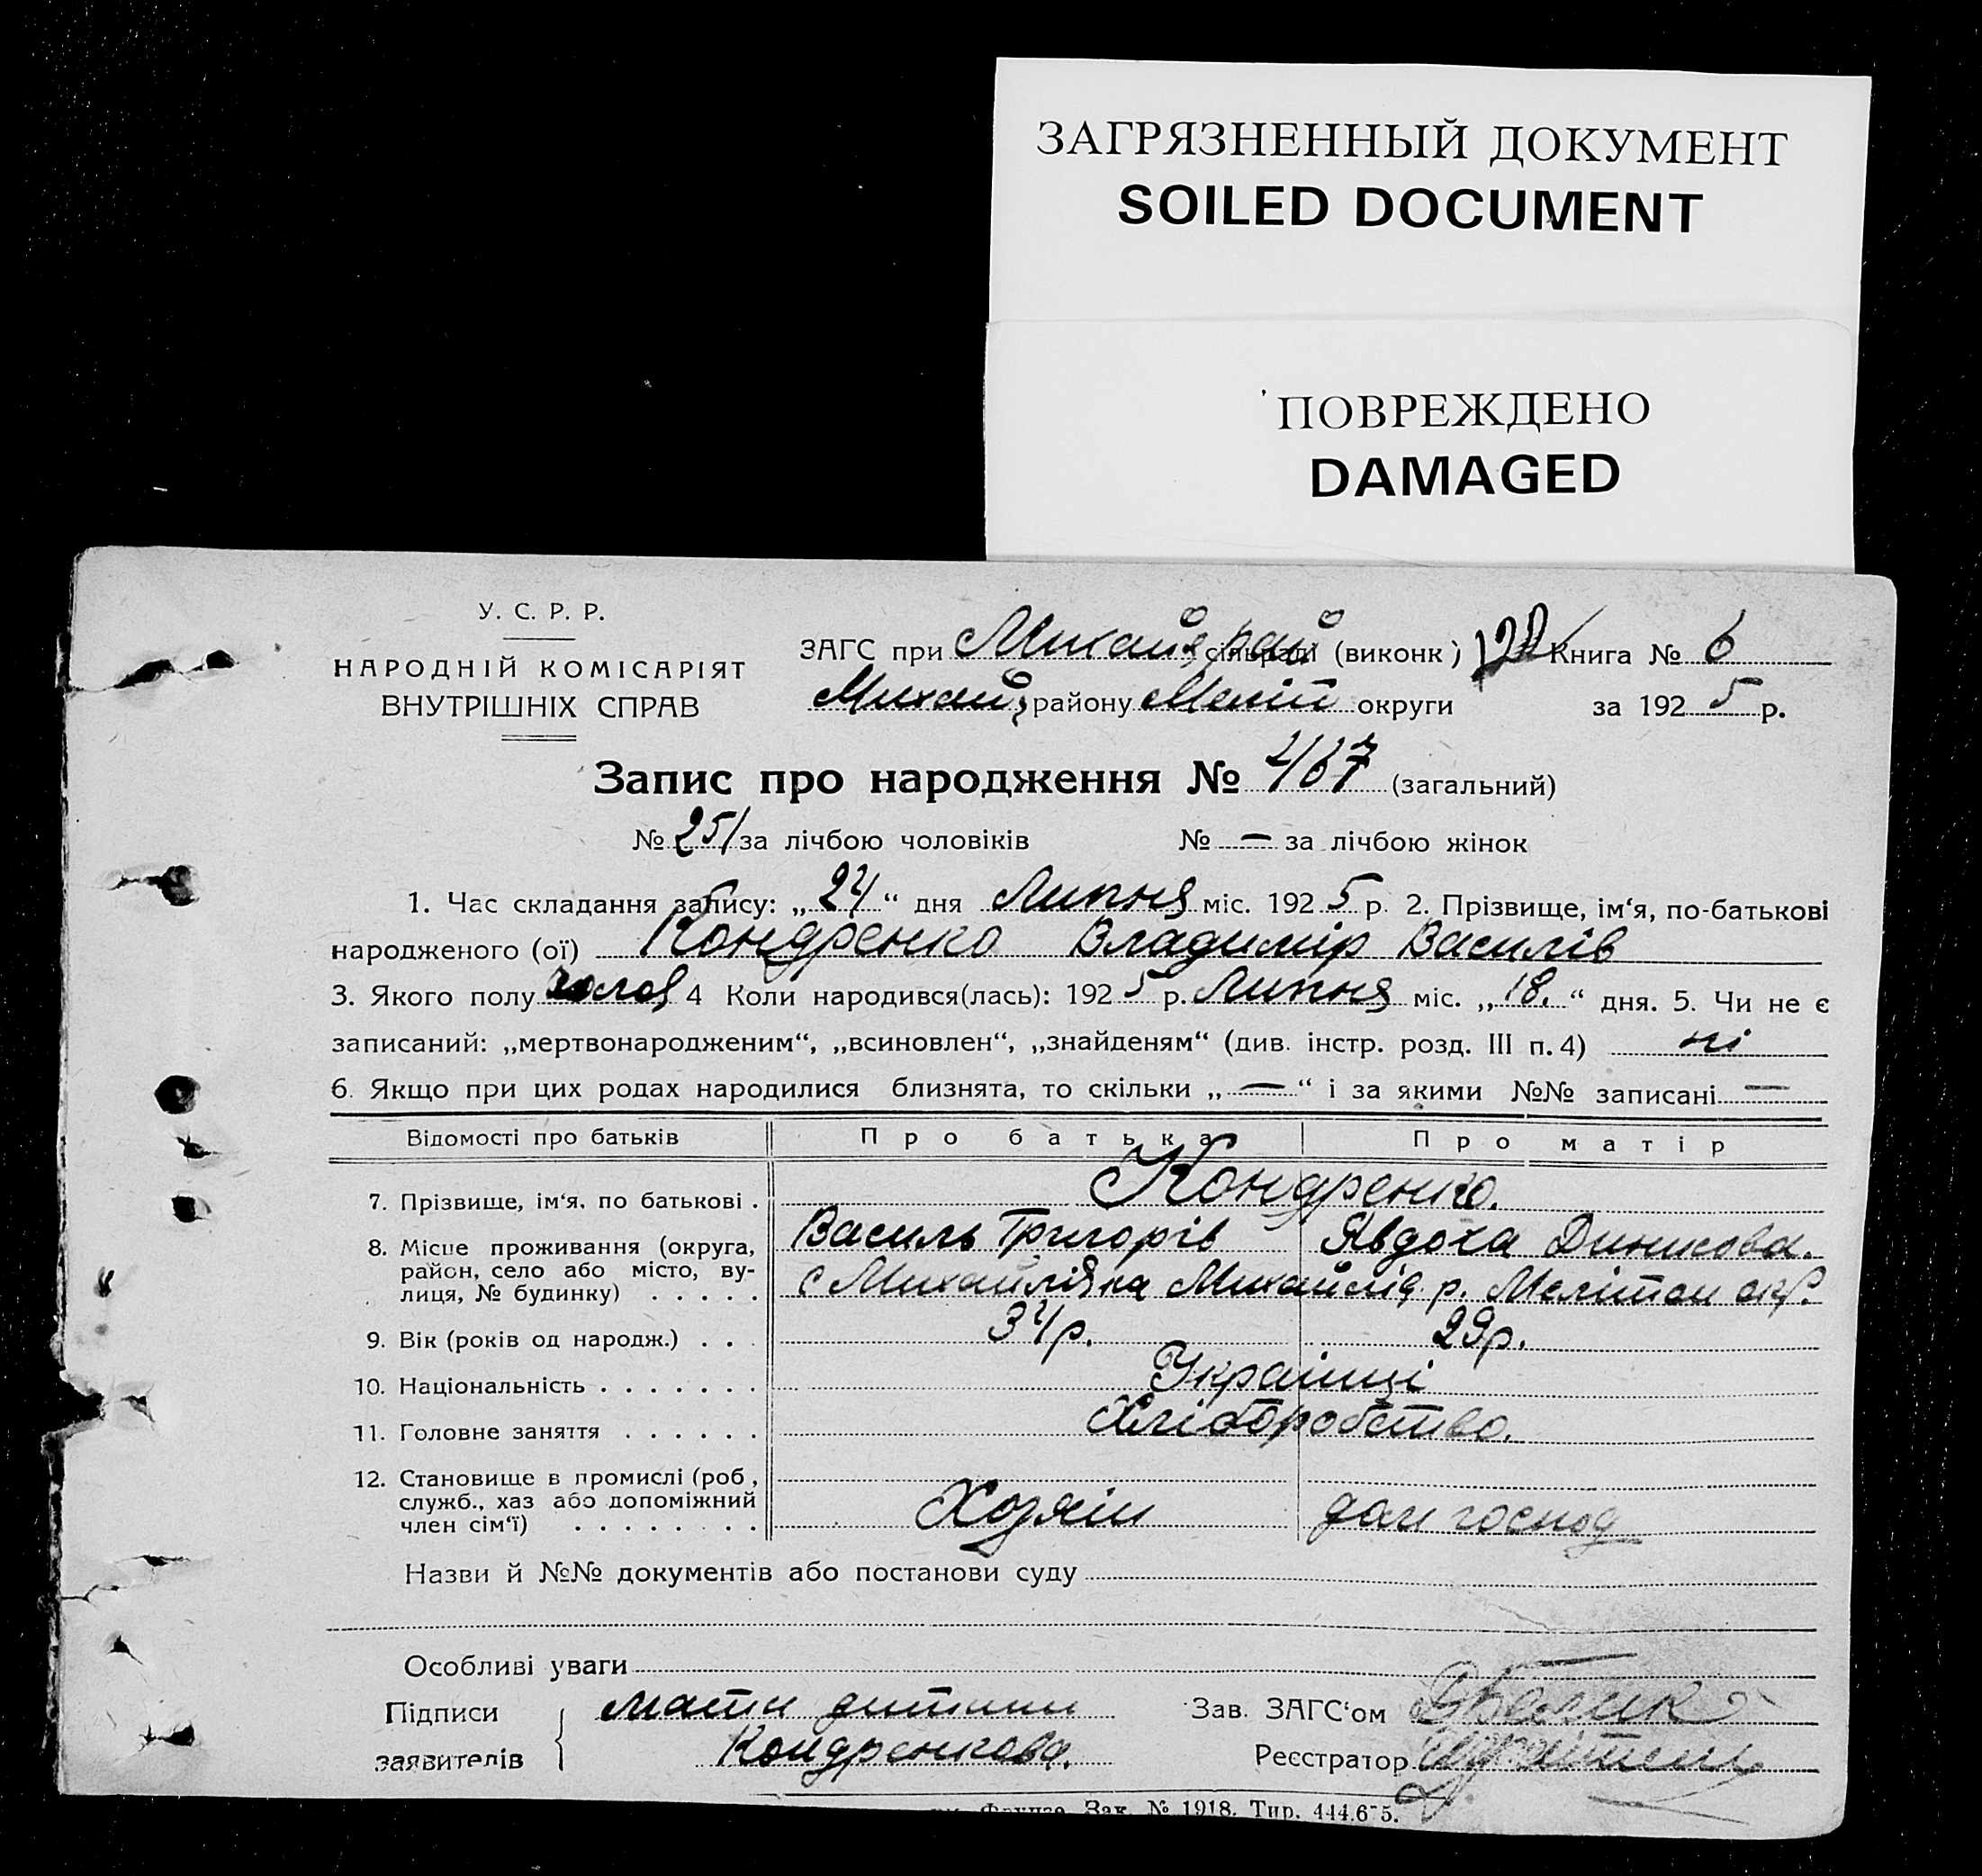 ЗАГРЯЗНЕННЫЙ ДОКУМЕНТ
SOILED DOCUMENT
ПОВРЕЖДЕНО
DAMAGED
У. С. Р. Р.
НАРОДНІЙ КОМІСАРІЯТ
ВНУТРІШНІХ СПРАВ
ЗАГС при Михайл рай сільраді (виконк) Книга № 6
Михайл району Меліт округи за 1925 р.
Запис про народження № 467 (загальний)
№ 251 за лічбою чоловіків № — за лічбою жінок
1. Час складання запису: „24“ дня Липня міс. 1925 р. 2. Прізвище, ім‘я, по-батькові
народженого (ої) Кондренко Владимір Василів
3. Якого полу чолов 4 Коли народився(лась): 1925 р. Липня міс. „18.“ дня. 5. Чи не є
записаний: „мертвонародженим“, „всиновлен“, „знайденям“ (див. інстр. розд. III п. 4) ні
6. Якщо при цих родах народилися близнята, то скільки „—“ і за якими №№ записані —
Відомості про батьків Про батька Про матір
7. Прізвище, ім‘я, по батькові . Кондренко.
Василь Григорів Явдоха Динисова.
8. Місце проживання (округа,
район, село або місто, ву-
лиця, № будинку) . . . . . с Михайлівка Михайлів. р. Мелітоп окр.
9. Вік (років од народж.) . . . 34 р. 29 р.
10. Національність . . . . . . . Українці
11. Головне заняття . . . . . . Хліборобство.
12. Становище в промислі (роб,
служб., хаз або допоміжний
член сім‘ї) . . . . . . . Хозяїн дом господ
Назви й №№ документів або постанови суду
Особливі уваги
Підписи мати дитини Зав. ЗАГС‘ом
заявителів Кондренкова. Реєстратор
Фрунзе. Зак. № 1918. Тир. 444.675.